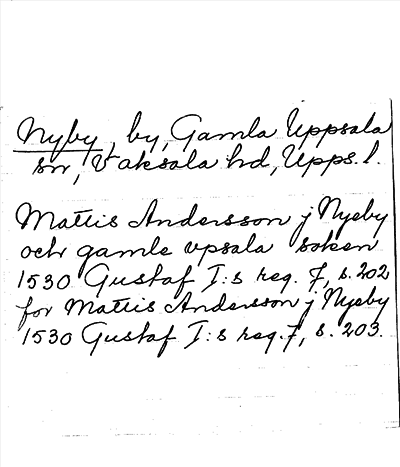 Nyby, by, Gamla Uppsala
sn, Vaksala hd, Upps. l.
Mattis Andersson j Nyeby
och gamle vpsala soken
1530 Gustaf I:s reg. 7, s. 202
for Mattis Andersson j Nyeby
1530 Gustaf I:s reg. 7, s. 203.